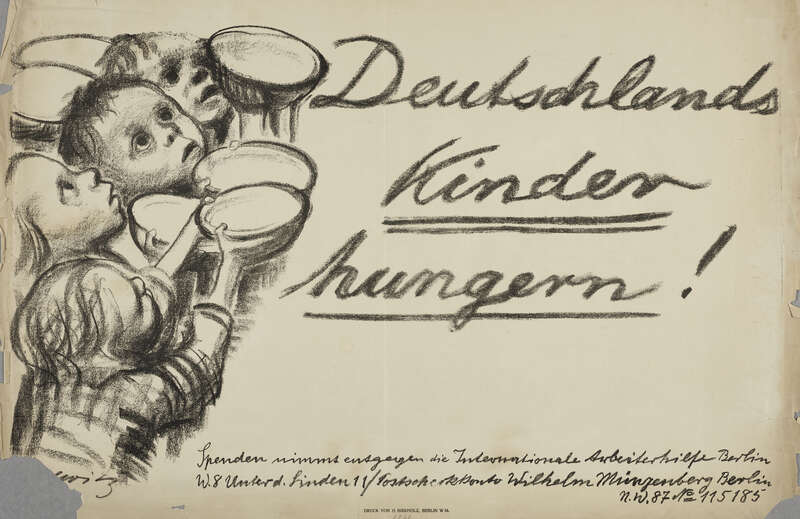 Deutschlands
Kinder
hungern!
Spenden nimmt entgegen die Internationale Arbeiterhilfe Berlin
W.8 Unter d. Linden 11/Postscheckkonto Wilhelm Münzenberg Berlin
N.W.87 No 115185
DRUCK VON H. BIRKHOLZ, BERLIN W 16.